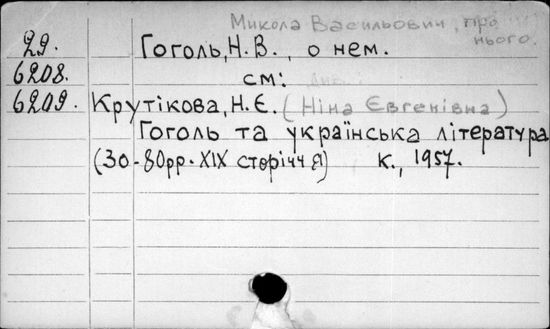 Микола Васильович, про нього.
29. Гоголь, Н. В., о нем.
6208. см:
6209. Крутікова, Н. Є. (Ніна Євгенівна)
Гоголь та українська література
(30-80рр. XIX сторіччя) К., 1957.